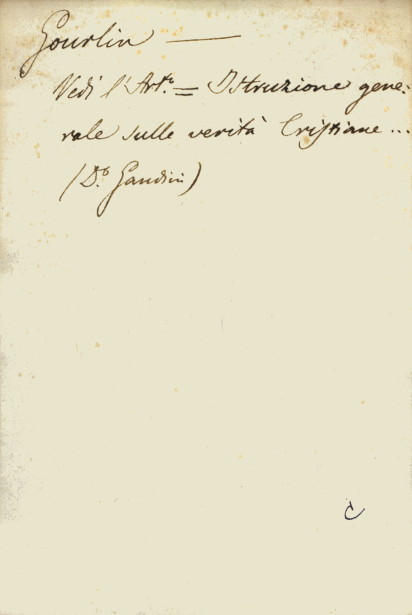 Gourlin —
Vedi l'Art.º = Istruzione gene:
rale sulle verità Cristiane...
(D.º Gandini)
C